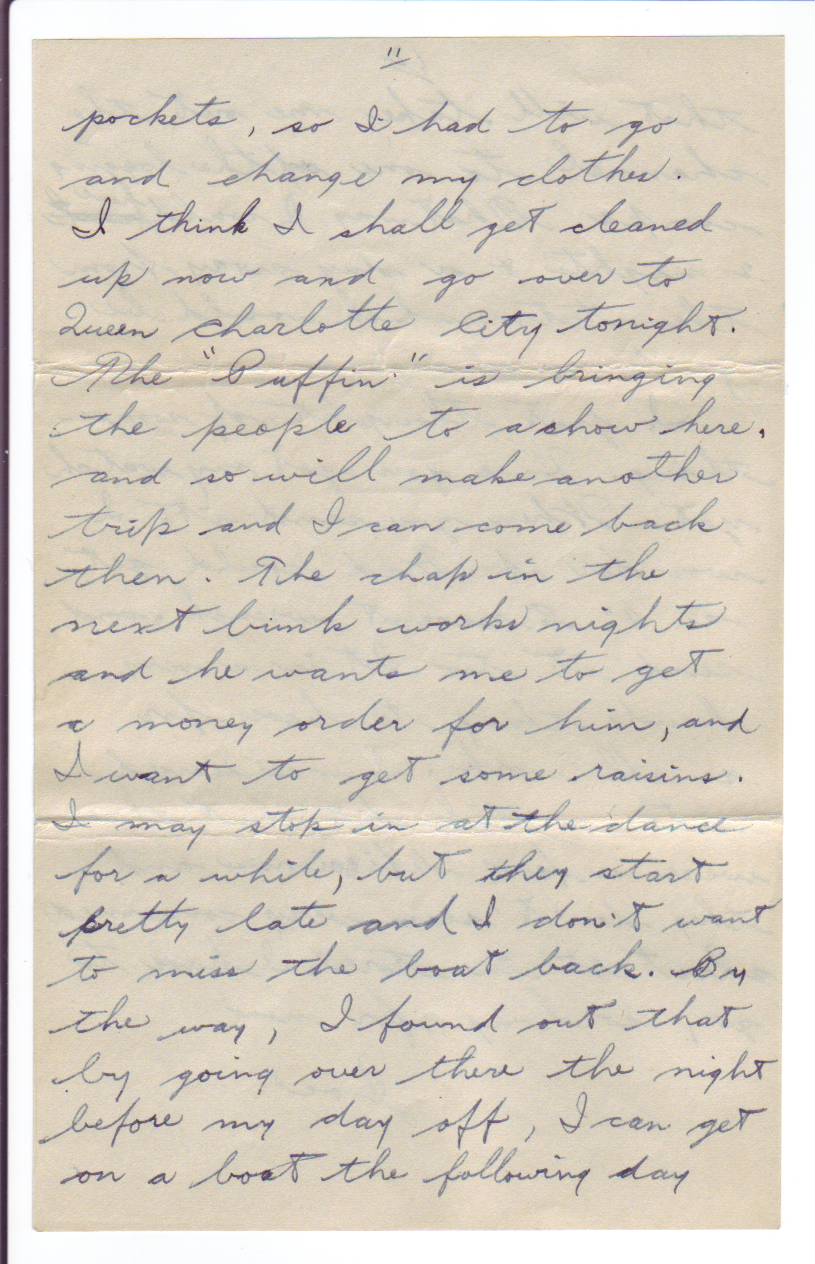 11
pockets, so I had to go
and change my clothes.
I think I shall get cleaned
up now and go over to
Queen Charlotte City tonight.
The "Puffin" is bringing
the people to a show here,
and so will make another
trip and I can come back
then. The chap in the
next bunk works nights
and he wants me to get
a money order for him, and
I want to get some raisins.
I may stop in at the dance
for a while, but they start
pretty late and I don't want
to miss the boat back. By
the way, I found out that
by going over there the night
before my day off, I can get
on a boat the following day